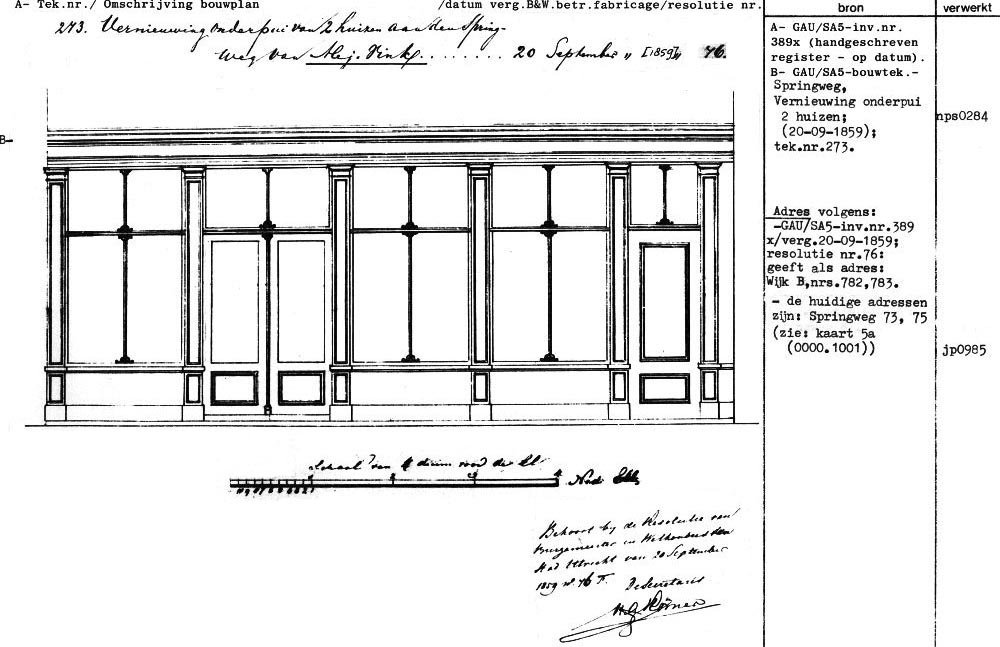 A- Tek.nr./ Omschrijving bouwplan /datum verg.B&W.betr.fabricage/resolutie nr.
bron
verwerkt
273. Vernieuwing onderpui van 2 huizen aan den Spring-
weg van Alej. Vink. ........ 20 September " [1859]" 76.
B-
A- GAU/SA5-inv.nr.
389x (handgeschreven
register - op datum).
B- GAU/SA5-bouwtek.-
Springweg,
Vernieuwing onderpui
2 huizen;
(20-09-1859);
tek.nr.273.
nps0284
Adres volgens:
-GAU/SA5-inv.nr.389
x/verg.20-09-1859;
resolutie nr.76:
geeft als adres:
Wijk B,nrs.782,783.
- de huidige adressen
zijn: Springweg 73, 75
(zie: kaart 5a
(0000.1001))
jp0985
Schaal van 4 duim voor de El
Ned: Ells
Behoort bij de Resolutie van
Burgemeester en Wethouders der
Stad Utrecht van 20 September
1859 No 76 F. De Secretaris